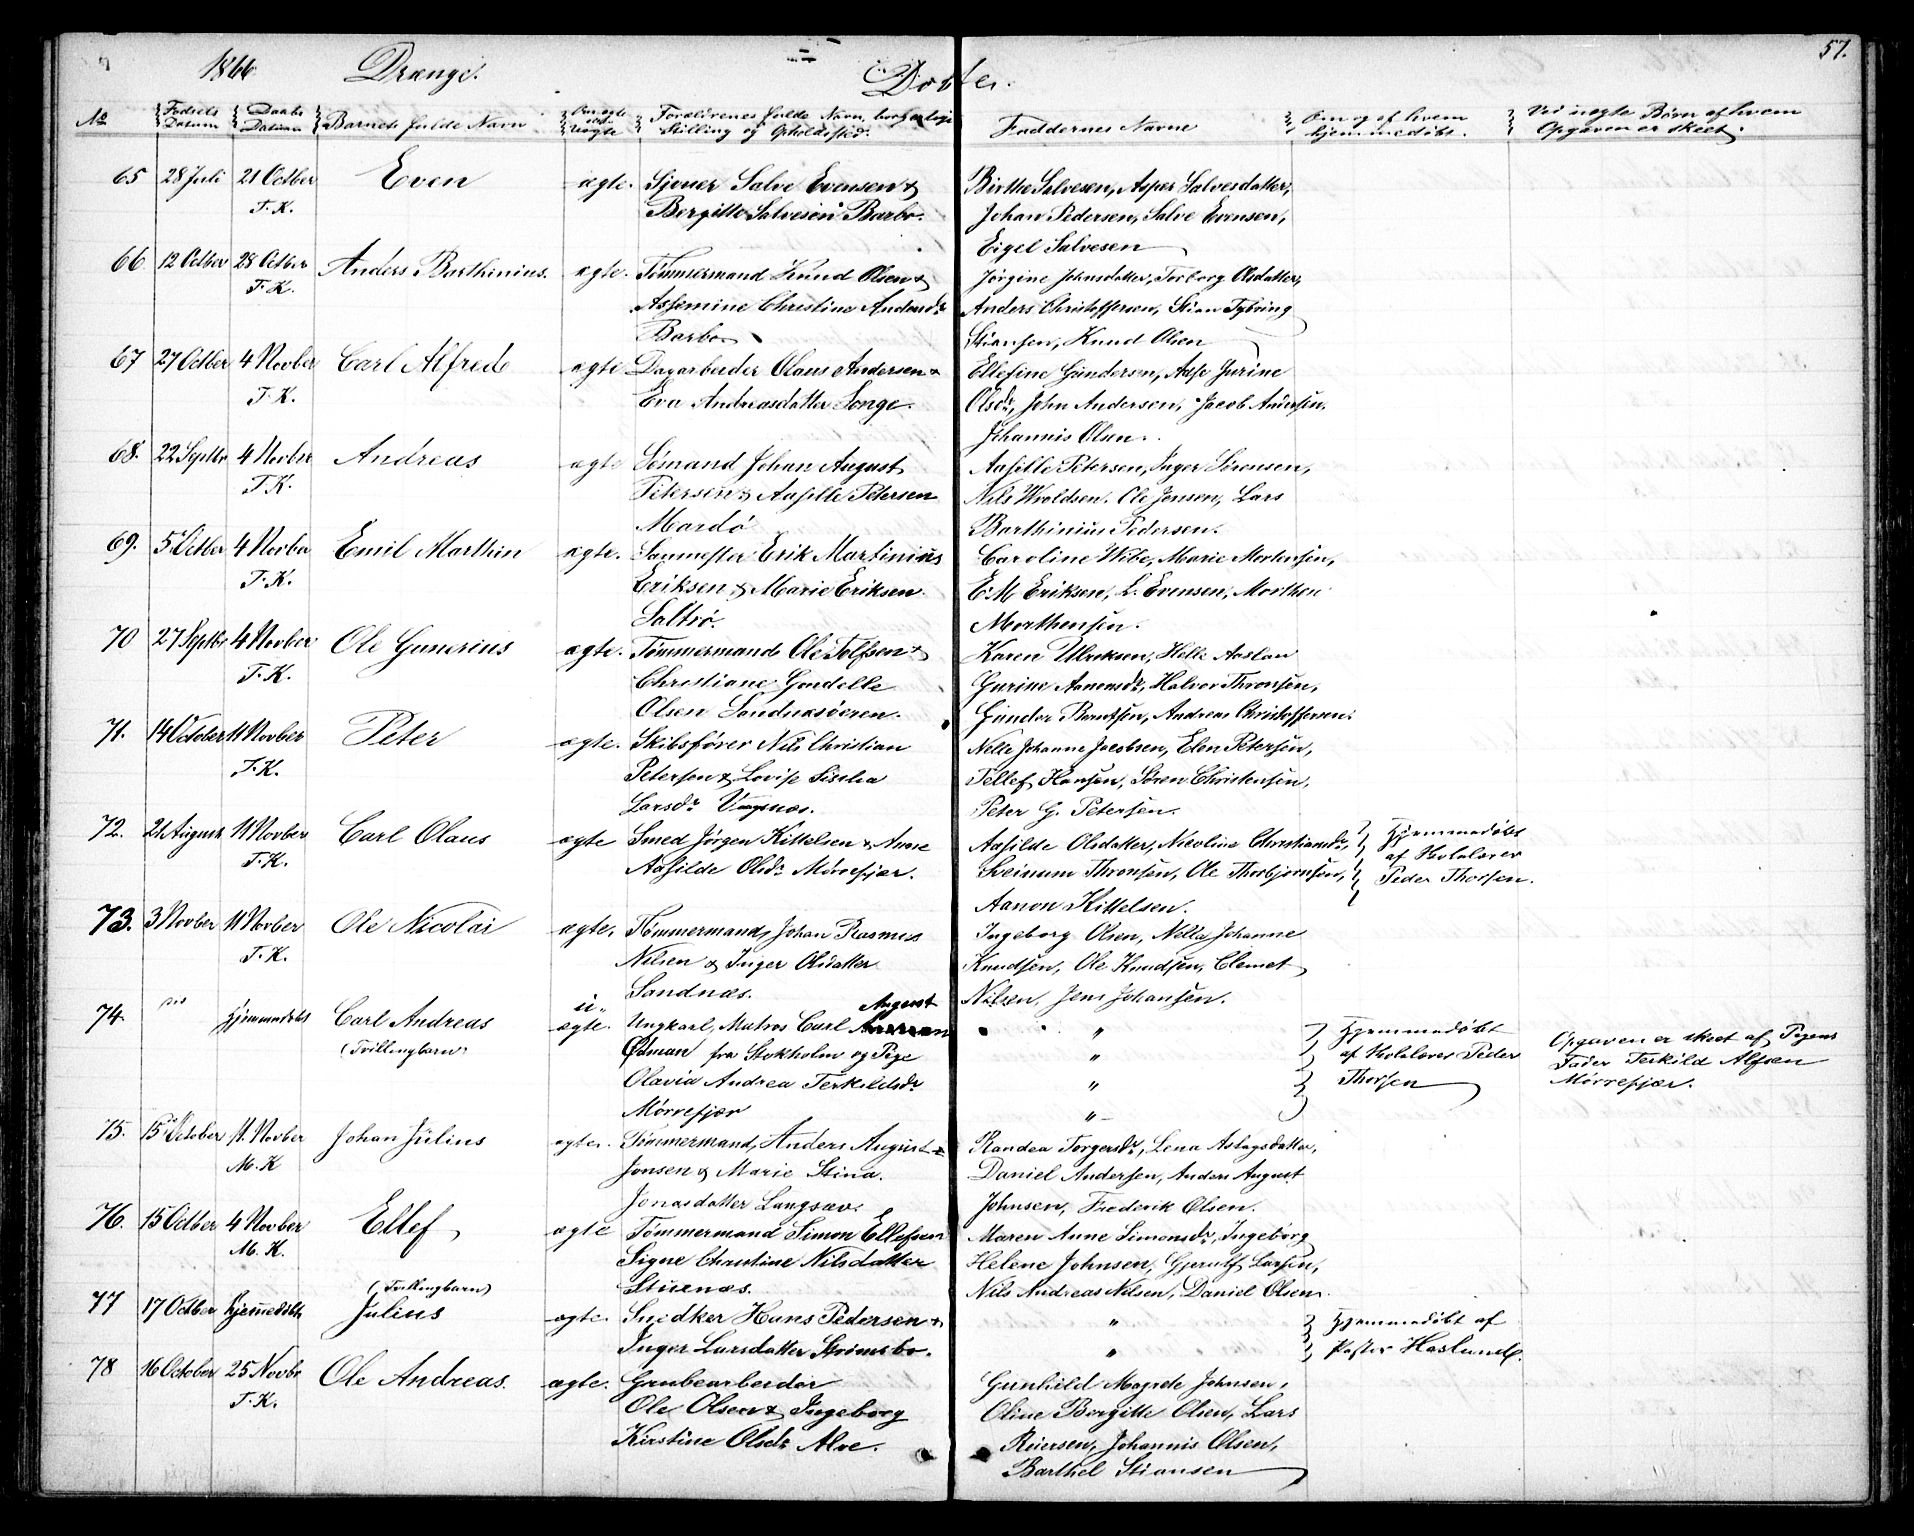 57.
1866 Drenge. Døbte.
No Fødsels Datum Daabs Datum Barnets fulde Navn Om ægte eller Uægte Forældrenes fulde Navn, borgerlige Stilling og Opholdssted. Faddernes Navne Om og af hvem hjemmedøbt. Ved uægte Børn af hvem Opgaven er skeet.
65 28 Juli 21 Octber Even ægte. Sjouer Salve Evensen & Birthe Salvesen, Asper Salvesdatter,
T. K. Bergitte Salvesen Barbo. Johan Pedersen, Salve Evensen,
Eigel Salvesen
66 12 Octber 28 Octber Anders Barthinius. ægte. Tømmermand Knud Olsen & Jørgine Johnsdatter, Torborg Olsdatter,
T. K. Assemine Christine Andersdr Anders Christoffersen, Stian Tybring
Barbo Stiansen, Knud Olsen
67 27 Octber 4 Novber Carl Alfred ægte Dagarbeider Olaus Andersen & Ellefine Gundersen, Aase Jurine
T. K. Eva Andreasdatter Songe. Olsdr, John Andersen, Jacob Andersen,
Johannis Olsen.
68. 22 Septbr 4 Novber Andreas ægte Sømand Johan August Aasille Petersen, Inger Sørensen,
T. K. Petersen & Aasille Petersen Nils Wroldsen. Ole Jensen, Lars
Mardø Barthinius Pedersen.
69. 5 Octber 4 Novber Emil Marthin ægte. Sanmester Erik Martinius Caroline Wibe, Marie Mortensen,
T. K. Eriksen & Marie Eriksen E. M Eriksen, L. Evensen, Morthen
Saltrø. Morthensen.
70 27 Septbr 4 Novber Ole Gunerius ægte. Tømmermand Ole Tolfsen & Karen Ulriksen, Helle Aaslau
T. K. Christiane Gondelle Gurine Aanonsdr, Halvor Thronsen,
Olsen Sandnæsøeren. Gunder Berntsen, Andreas Christoffersen.
71. 14 October 11 Novber Peter ægte. Skibsfører Nils Christian Nelle Johanne Jacobsen, Elen Petersen,
T. K. Petersen & Lovise Sissilia Tellef Hansen, Søren Christensen,
Larsdr Vragsnæs. Peter G. Petersen.
72. 21 August 11 Novber Carl Olaus ægte Smed Jørgen Kittelsen & Anne Aasilde Olsdatter, Nicoline Christiansdr, Hjemmedøbt
T. K. Aasilde Olsdr Mørrefjær. Sveinum Thronsen, Ole Thorbjørnsen, af Skolelærer
Aanon Kittelsen. Peder Thorsen.
73. 3 Novber 11 Novber Ole Nicolai ægte. Tømmermand Johan Rasmus Ingeborg Olsen, Nella Johanne
T. K. Nilsen & Inger Olsdatter Knudsen, Ole Knudsen, Clemet
Sandnæs. Nilsen, Jens Johansen.
74. Hjemmedøbt Carl Andreas u- ægte. Ungkarl, Matros Carl August " Hjemmedøbt Opgaven er skeet af Pigens
(Tvillingbarn) Ødman fra Stokholm og Pige " af Skolelærer Peder Fader Terkild Alfsen
Olavia Andrea Terkildsdr " Thorsen Mørrefjær.
Mørrefjær "
75. 15 October 11. Novber Johan Julius ægte. Tømmermand, Anders August Randea Torgersdr, Lena Aslagsdatter,
M. K Jonsen & Marie Stina Daniel Andersen, Anders August
Jonasdatter Langsæv. Johnsen, Frederik Olsen.
76. 15 Octber 4 Novber Ellef ægte Tømmermand Simon Ellefsen Maren Anne Simonsdr, Ingeborg
M. K. Signe Christine Nilsdatter Helene Johnsen, Gjerulf Larsen,
Stuenæs. Nils Andreas Nilsen, Daniel Olsen.
(Tvillingbarn)
77 17 Octber Hjemmedøbt Julius ægte. Snedker Hans Pedersen & " Hjemmedøbt af
Inger Larsdatter Strømsbo. " Pastor Haslund.
78 16 October 25 Novbr Ole Andreas. ægte. Grubearbeider Gunhild Magrete Johnsen,
T. K. Ole Olsen & Ingeborg Oline Bergitte Olsen, Lars
Kirstine Olsdr Alve. Reiersen, Johannis Olsen,
Barthel Stiansen